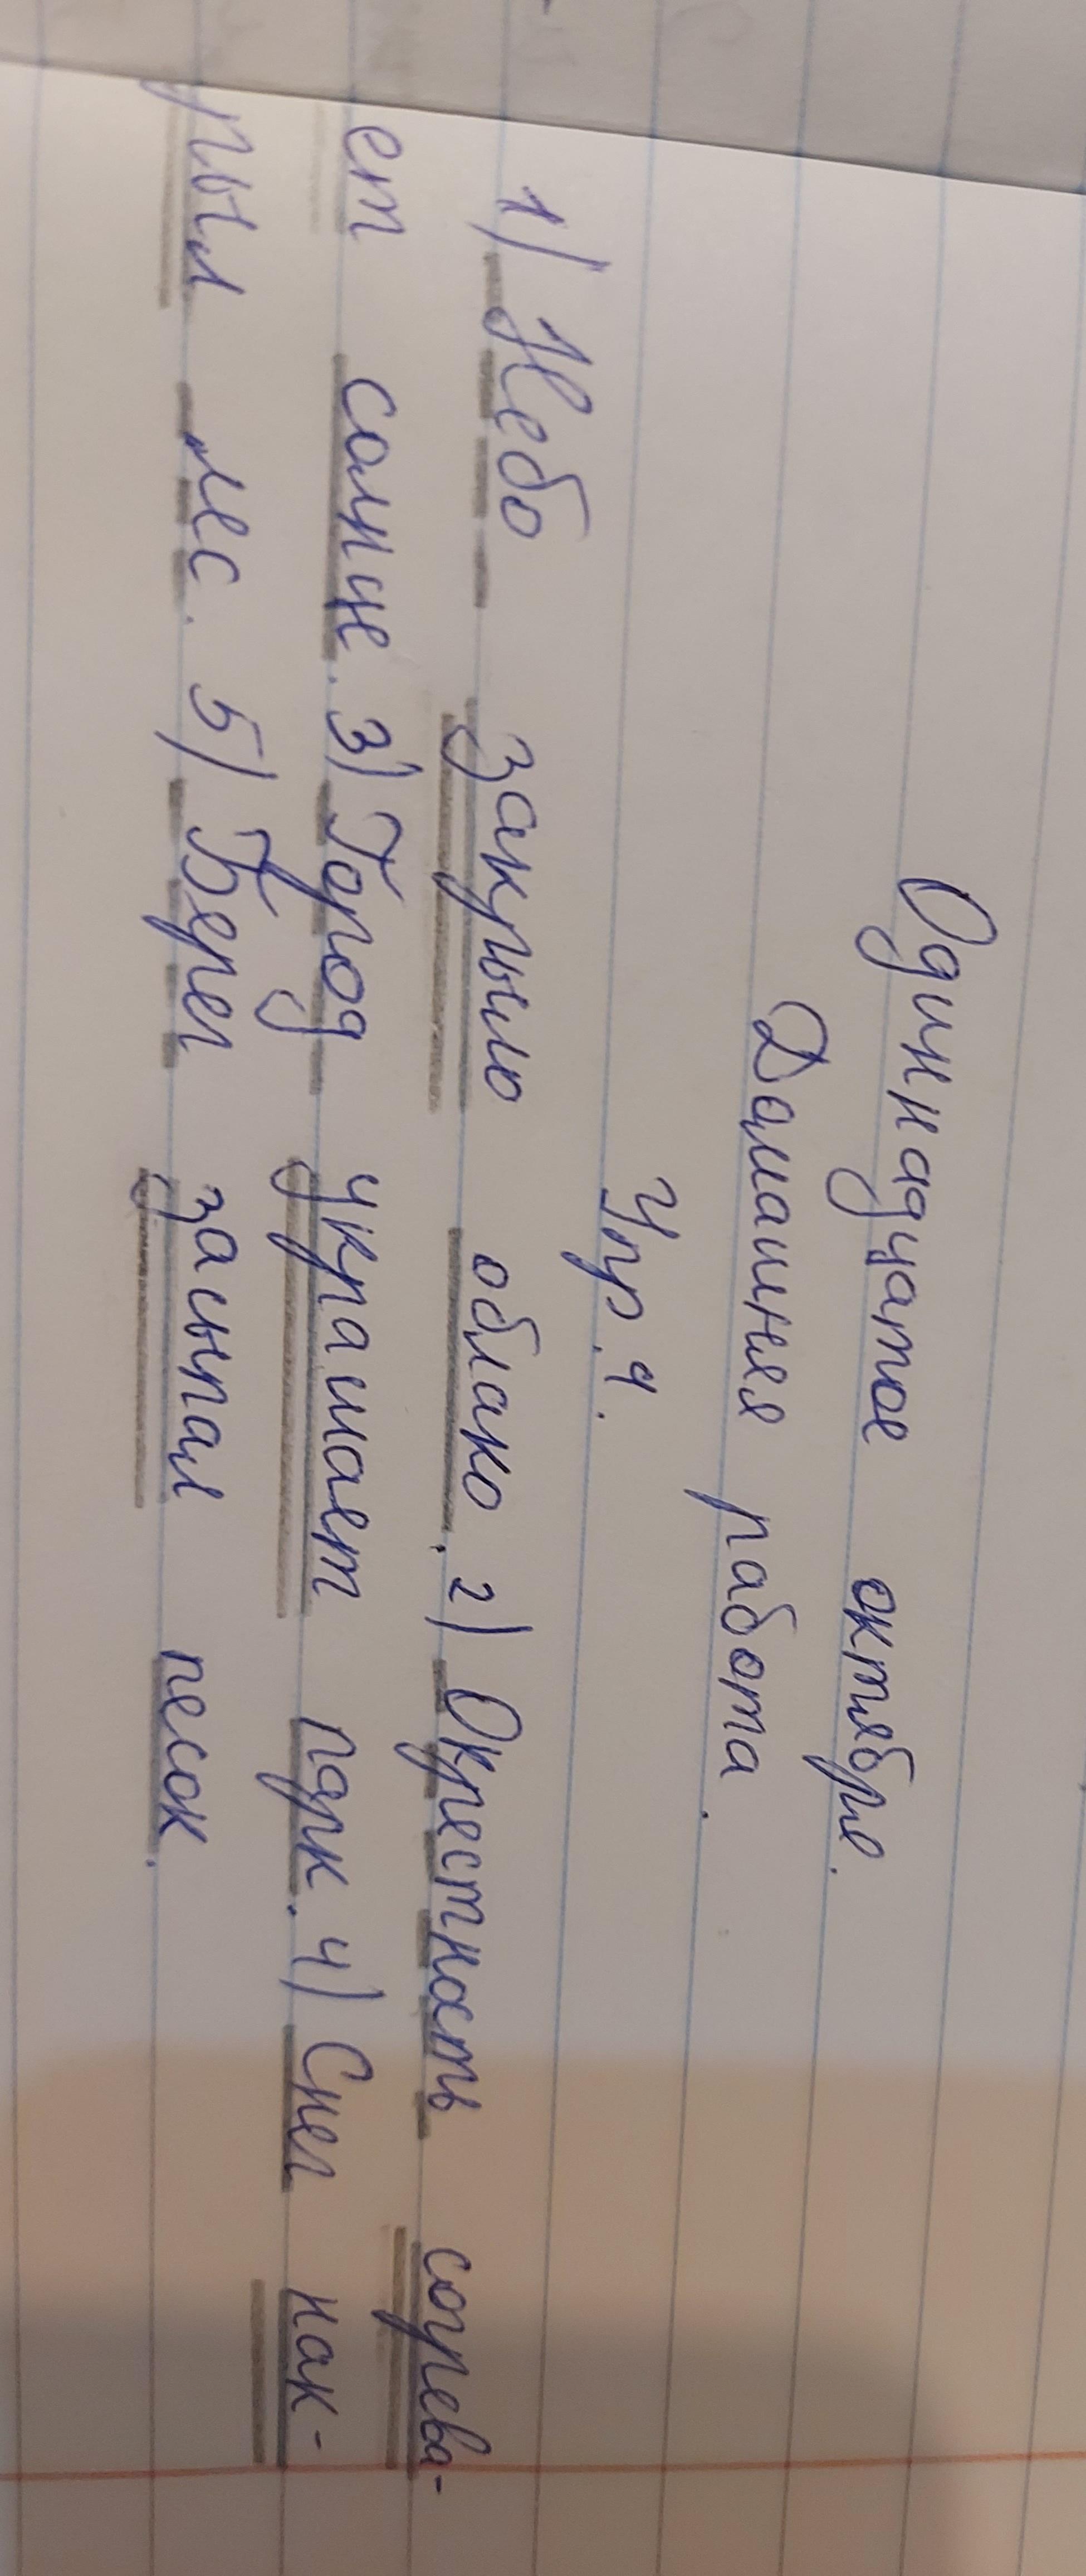 Одиннадцатое октября.
Домашняя работа.
Упр. 4.
1) Небо закрыло облако. 2) Окрестность согрева-
ет солнце. 3) Город украшает парк. 4) Снег нак-
рыл лес. 5) Берег засыпал песок.